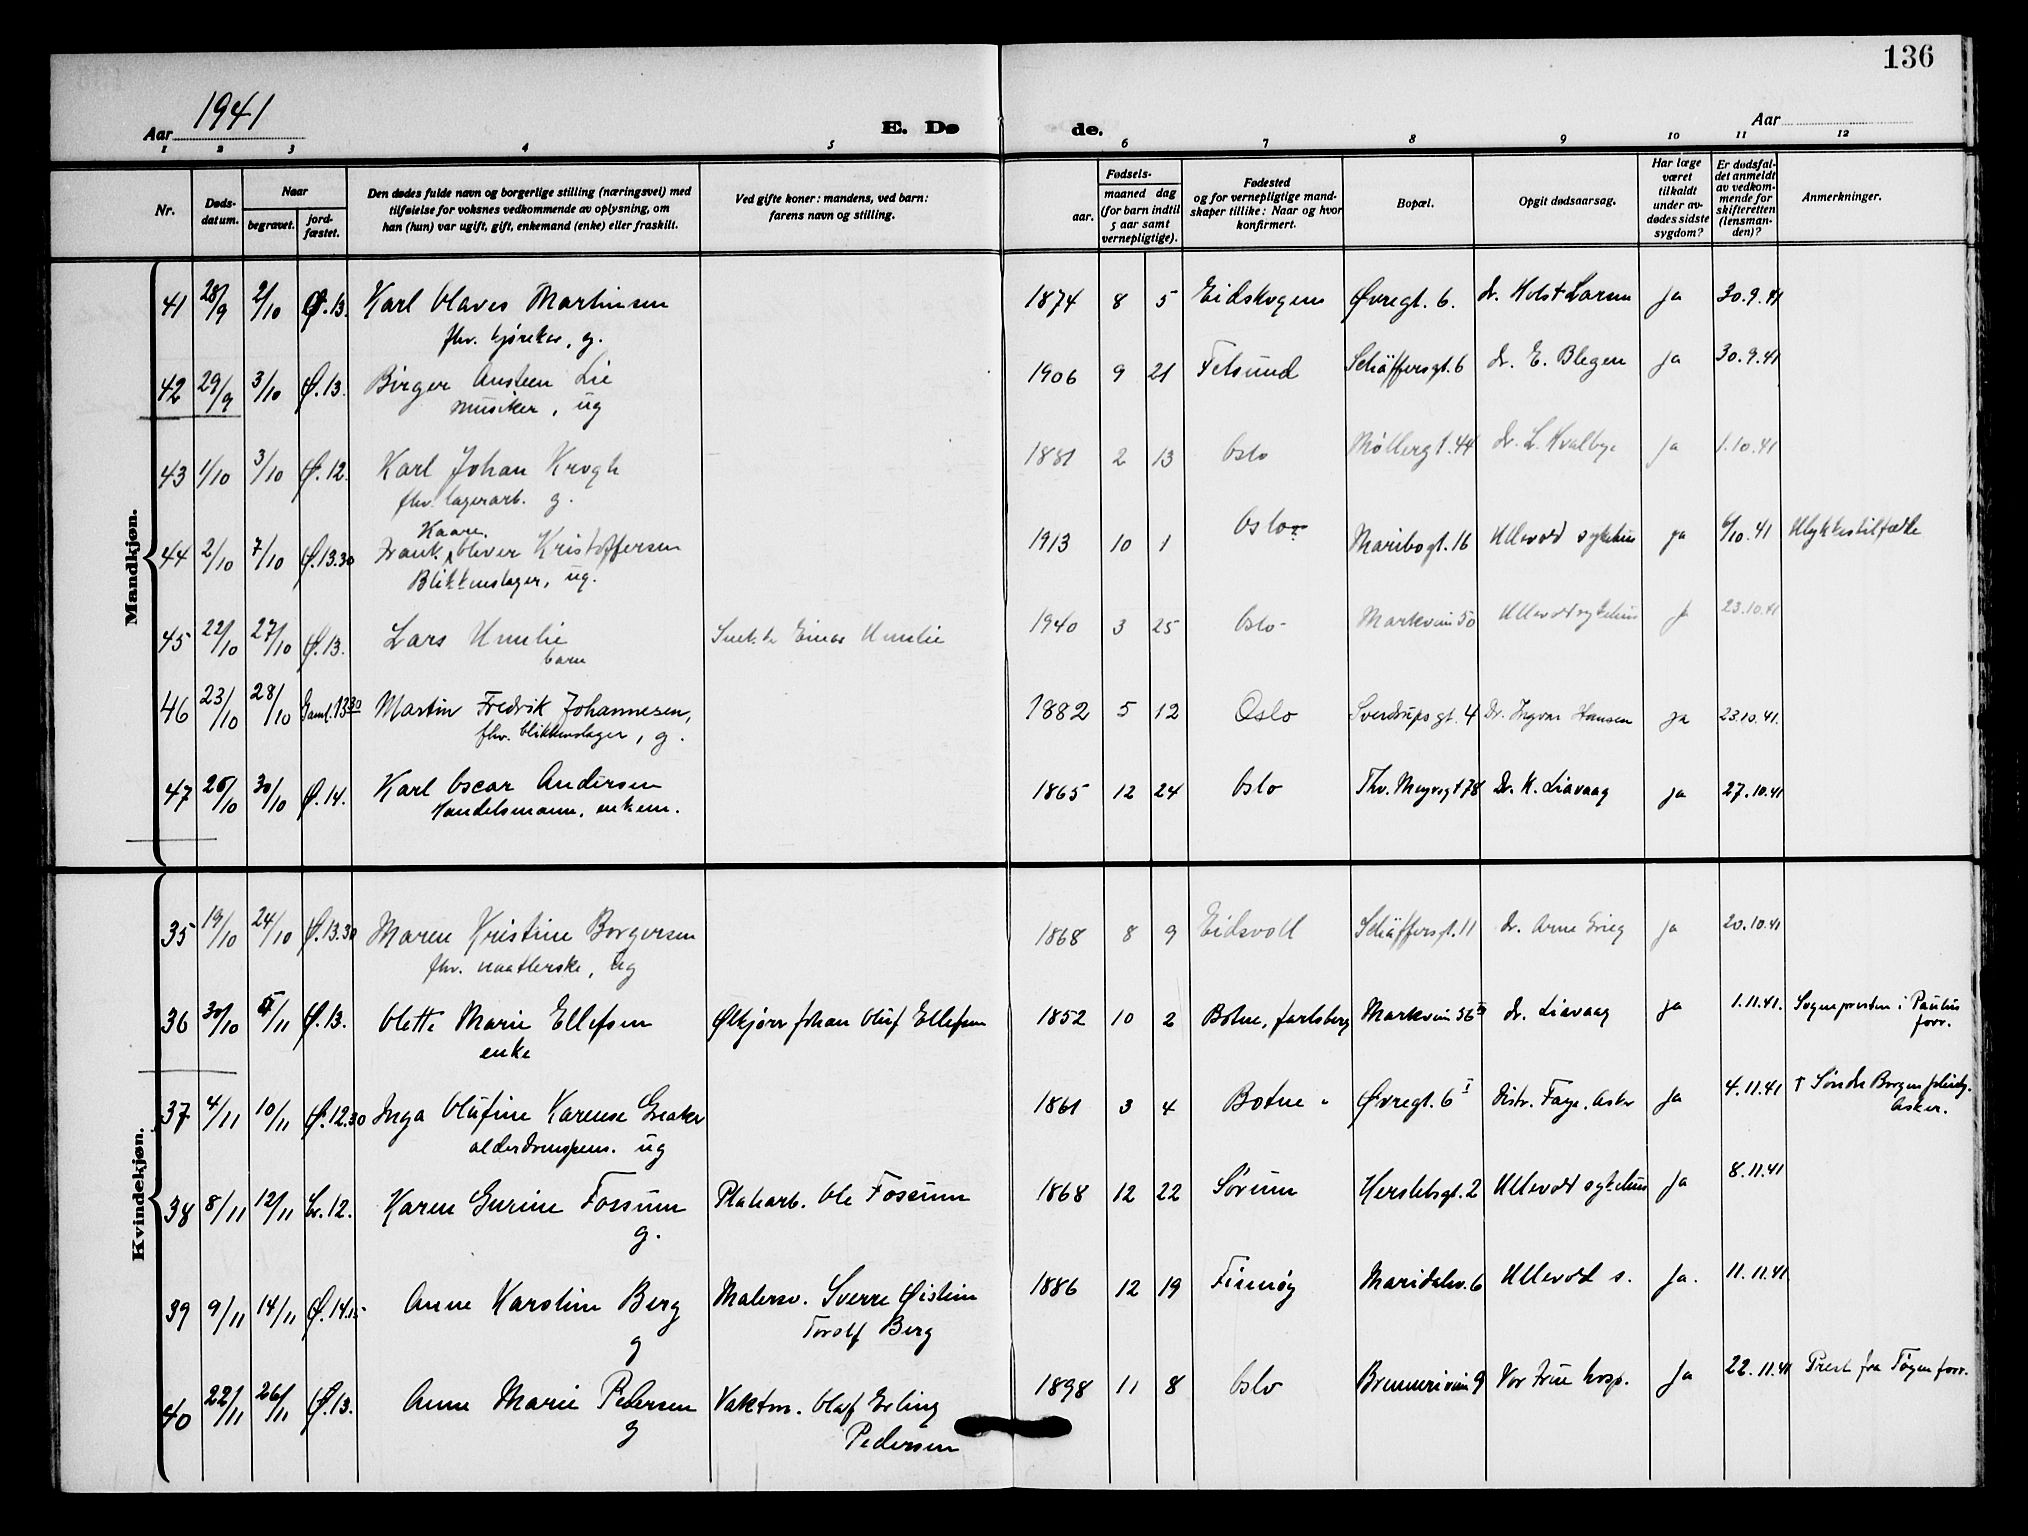 136
Aar 1941
E. Dø de.
Aar
1 2 3 4 5 6 7 8 9 10 11 12
Nr.
Døds-
datum.
Naar
begravet.
jord-
fæstet.
Den dødes fulde navn og borgerlige stilling (næringsvei) med
tilføielse for voksnes vedkommende av oplysning, om
han (hun) var ugift, gift, enkemand (enke) eller fraskilt.
Ved gifte koner: mandens, ved barn:
farens navn og stilling.
Fødsels-
aar.
maaned dag
(for barn indtil
5 aar samt
vernepligtige).
Fødested
og for vernepligtige mand-
skaper tillike: Naar og hvor
konfirmert.
Bopæl.
Opgit dødsaarsag.
Har læge
været
tilkaldt
under av-
dødes sidste
sygdom?
Er dødsfal-
det anmeldt
av vedkom-
mende for
skifteretten
(lensman-
den)?
Anmerkninger.
Mandkjøn.
41 28/9 2/10 Ø.13. Karl Olaves Martinsen 1874 8 5 Eidskogen Øvregt. 6. dr. Holst Larsen ja 30.9.41
fhv. kjørekar, g.
42 29/9 3/10 Ø.13. Birger Austeen Lie 1906 9 21 Fetsund Schäffersgt. 6 dr. E. Blegen ja 30.9.41
musiker, ug
43 1/10 3/10 Ø.12. Karl Johan Krogh 1881 2 13 Oslo Møllergt. 44 dr. L. Kvalbye ja 1.10.41
fhv. lagerarb. g.
Kaare
44 2/10 7/10 Ø.13.30 Frank Oliver Kristoffersen 1913 10 1 Oslo Maribogt. 16 Ullevold sykehus ja 6/10.41 Ulykkestilfælle
Blikkenslager, ug.
45 22/10 27/10 Ø.13. Lars Umlie Einar Umlie 1940 3 25 Oslo Markveien 50 Ullevold sykehus J 23.10.41
barn
46 23/10 28/10 Gaml. 13 30 Martin Fredrik Johannesen, 1882 5 12 Oslo Sverdrupsgt. 4 Dr. Ingvar Hansen ja 23.10.41.
fhv. blikkenslager, g.
47 26/10 30/10 Ø.14. Karl Oscar Andersen 1865 12 24 Oslo Thv. Meyersgt 78 Dr. K. Liavaag ja 27.10.41
Handelsmann, enkem.
Kvindekjøn.
35 19/10 24/10 Ø.13.30 Maren Kristine Borgersen 1868 8 9 Eidsvoll Schäffersgt. 11 dr. Arne Grieg ja 20.10.41
fhv. naatlerske, ug
36 30/10 5/11 Ø.13. Olette Marie Ellefsen Ølkjører Johan Oluf Ellefsen 1852 10 2 Botne, Jarlsberg Markveien 56 II dr. Liavaag ja 1.11.41. Sognepresten i Paulus
forr.
enke
37 4/11 10/11 Ø.12.30 Inga Olufine Karense Greaker 1861 3 4 Botne " Øvregt. 6 I Distr. Faye. Asker ja 4.11.41 † Søndre Borgen pleiehj.
Asker.
alderdomspens. ug
38 8/11 12/11 Gr. 12. Karen Gurine Fossum Platearb. Ole Fossum 1868 12 22 Sørum Herslebsgt. 2 Ullevold sykehus ja 8.11.41
g.
39 9/11 14/11 Ø.14.15 Anne Karoline Berg Malersv. Sverre Øistein 1886 12 19 Finnøy Maridalsv. 6 Ullevold s. ja. 11.11.41
g Torolf Berg
40 22/11 26/11 Ø.13. Anne Marie Pedersen Vaktm. Olaf Erling 1898 11 8 Oslo Brenneriveien 9 Vor Frue hosp. Ja 22.11.41 Prest fra Tøyen forr.
g Pedersen